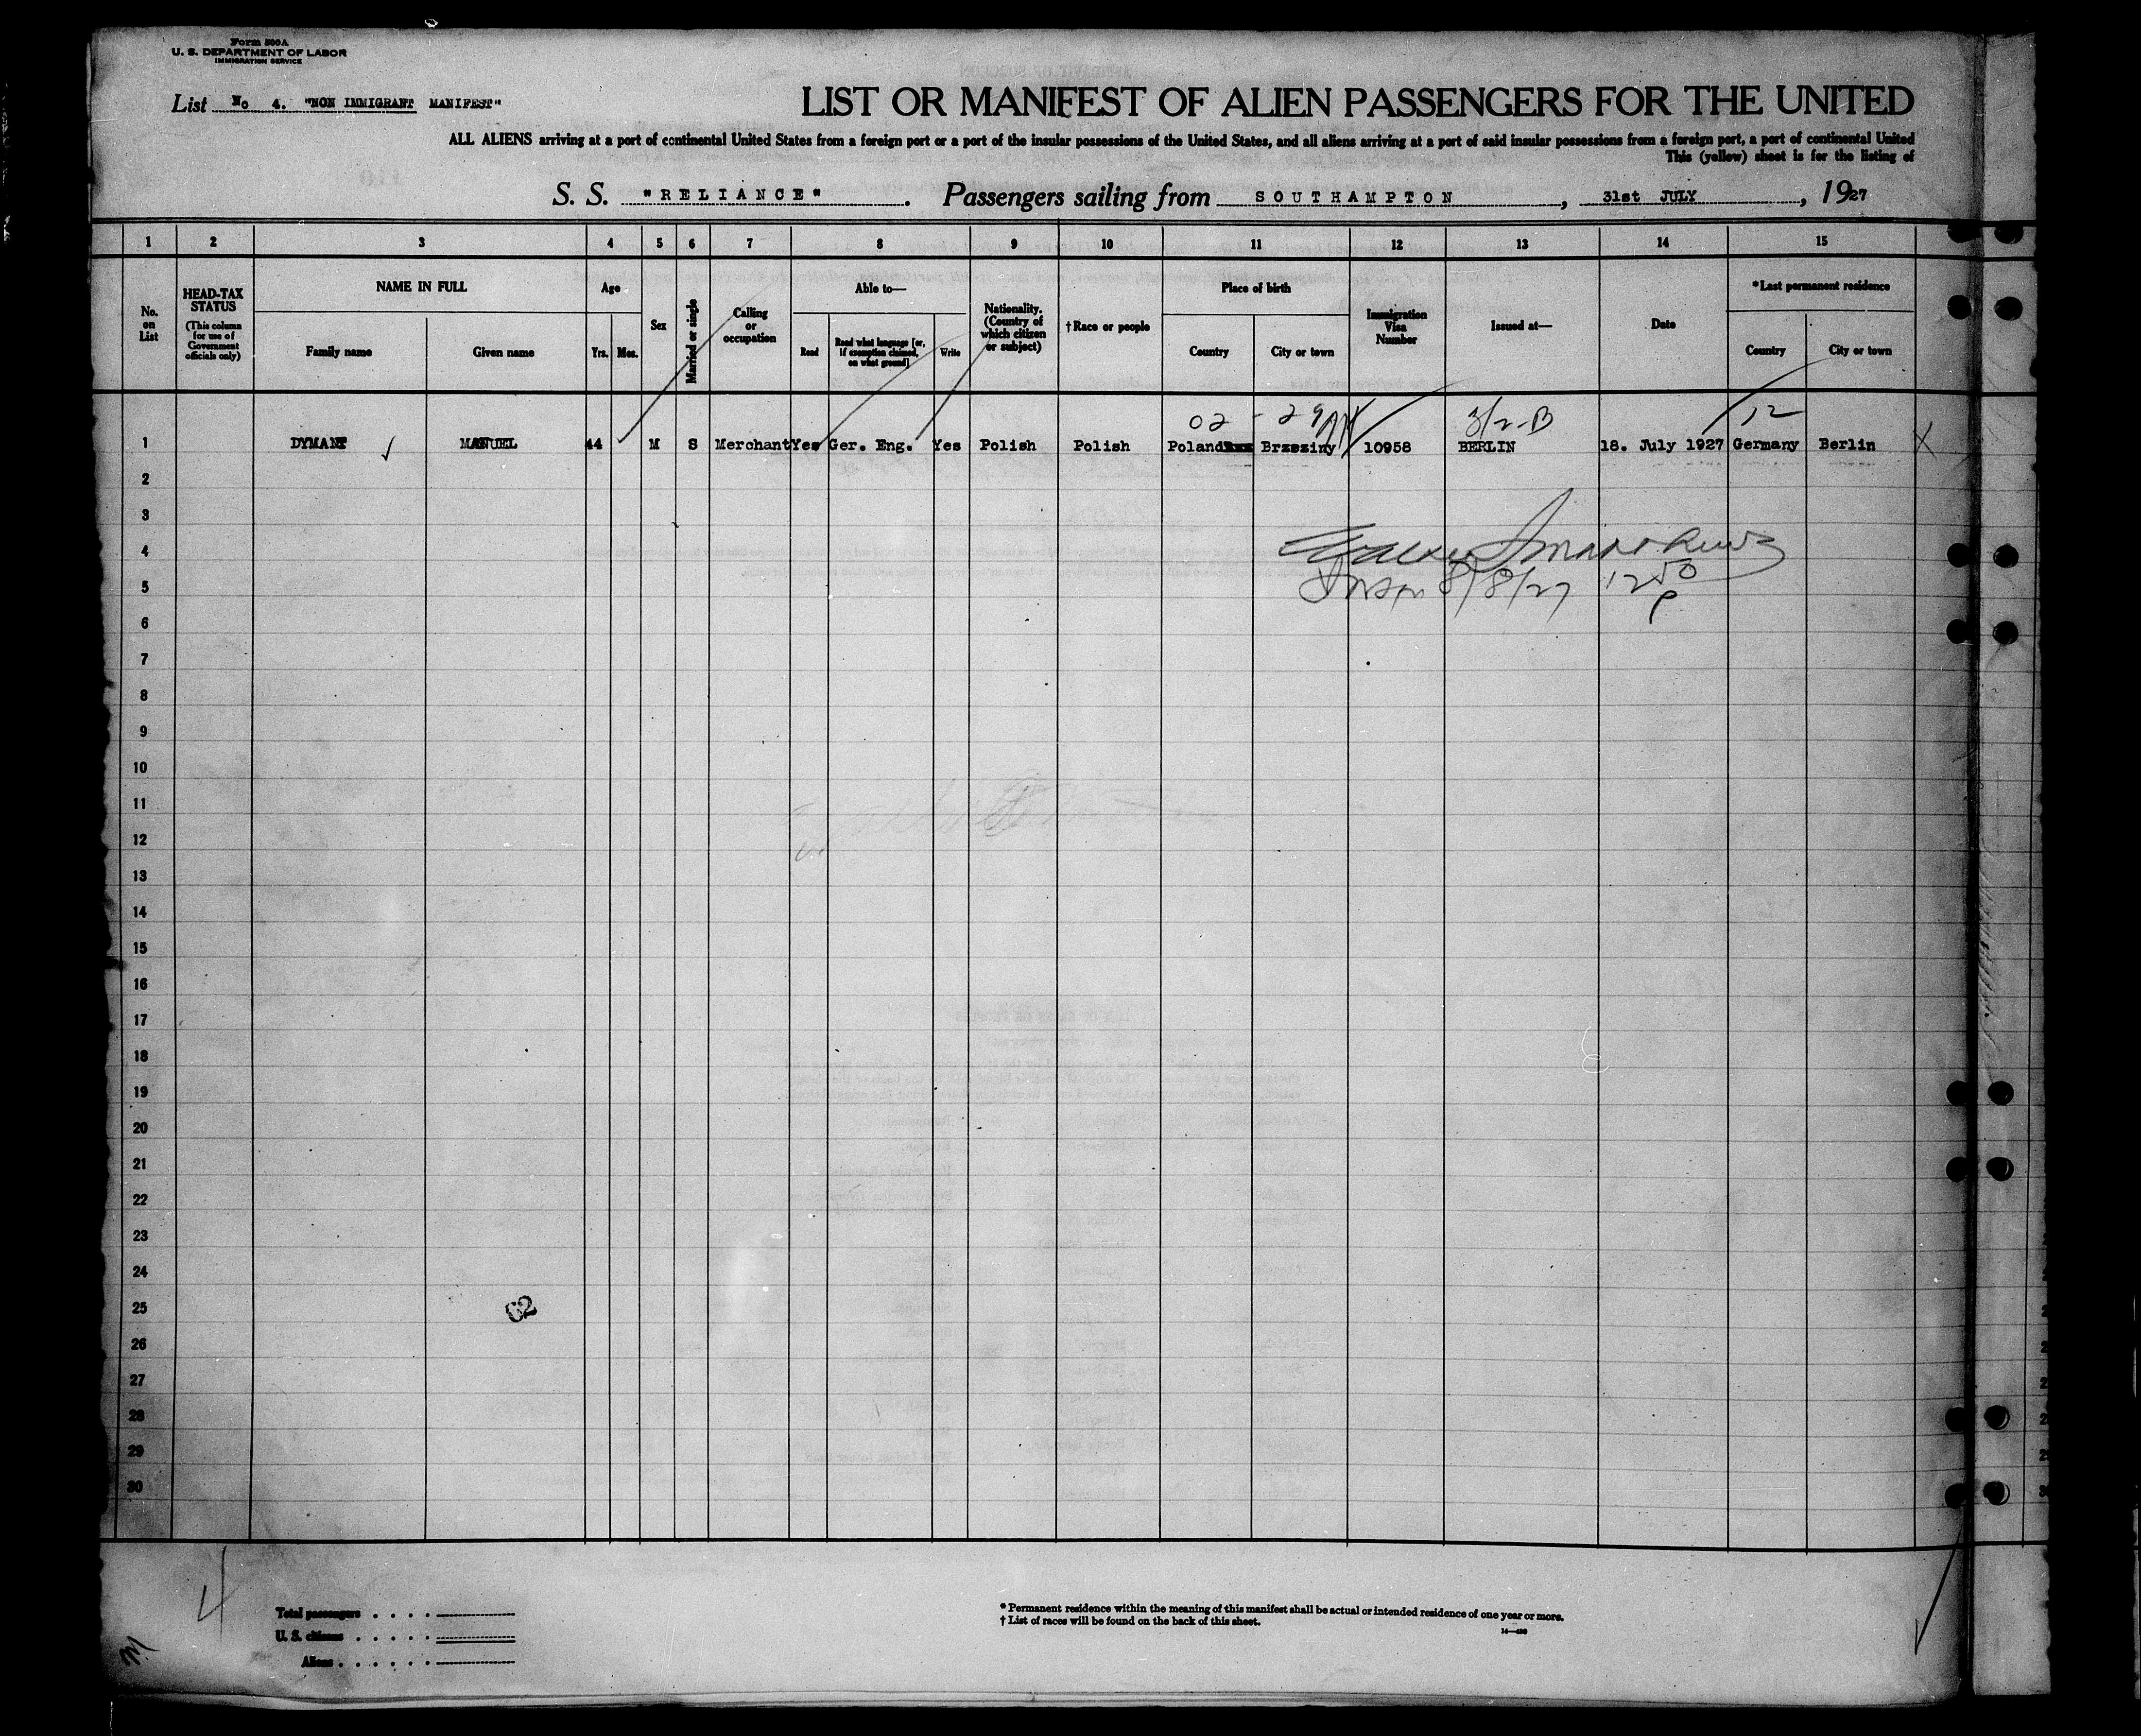 Form 500A
U. S. DEPARTMENT OF LABOR
IMMIGRATION SERVICE
List No 4. "NON IMMIGRANT MANIFEST"
LIST OR MANIFEST OF ALIEN PASSENGERS FOR THE UNITED
ALL ALIENS arriving at a port of continental United States from a foreign port or a port of the insular possessions of the United States, and all aliens arriving at a port of said insular possessions from a foreign port, a port of continental United
This (yellow) sheet is for the listing of
S. S. "RELIANCE". Passengers sailing from SOUTHAMPTON, 31st JULY, 1927
1 2 3 4 5 6 7 8 9 10 11 12 13 14 15
No. on List
HEAD-TAX STATUS
(This column for use of Government officials only)
NAME IN FULL
Family name Given name
Age
Yrs. Mos.
Sex
Married or single
Calling or occupation
Able to—
Read
Read what language [or, if exemption claimed, on what ground]
Write
Nationality. (Country of which citizen or subject)
† Race or people
Place of birth
Country City or town
Immigration Visa Number
Issued at—
Date
* Last permanent residence
Country City or town
02 - 29 3/2-B 12
1 DYMANT MANUEL 44 M S Merchant Yes Ger. Eng. Yes Polish Polish Poland Brzeziny 10958 BERLIN 18. July 1927 Germany Berlin X
2
3
4
5
8/8/27 12 50 P
6
7
8
9
10
11
12
13
14
15
16
17
18
19
20
21
22
23
24
25
26
27
28
29
30
4
Total passengers
U. S. citizens
Aliens
* Permanent residence within the meaning of this manifest shall be actual or intended residence of one year or more.
† List of races will be found on the back of this sheet.